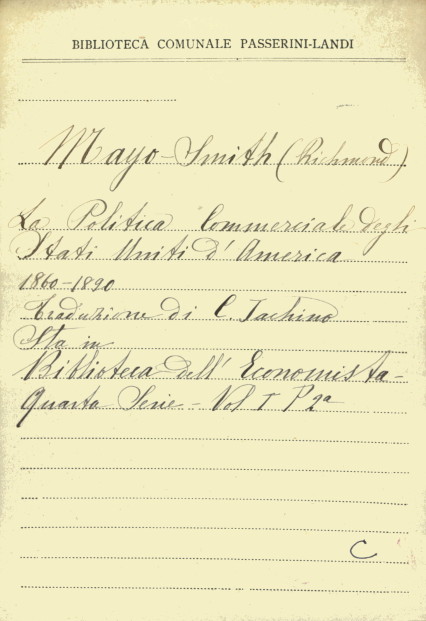 BIBLIOTECA COMUNALE PASSERINI-LANDI
Mayo-Smith (Richmond)
La Politica Commerciale degli
Stati Uniti d'America
1860-1890
Traduzione di C. Jachino
Sta in
Biblioteca dell'Economista-
Quarta Serie - Vol I P 2a
C